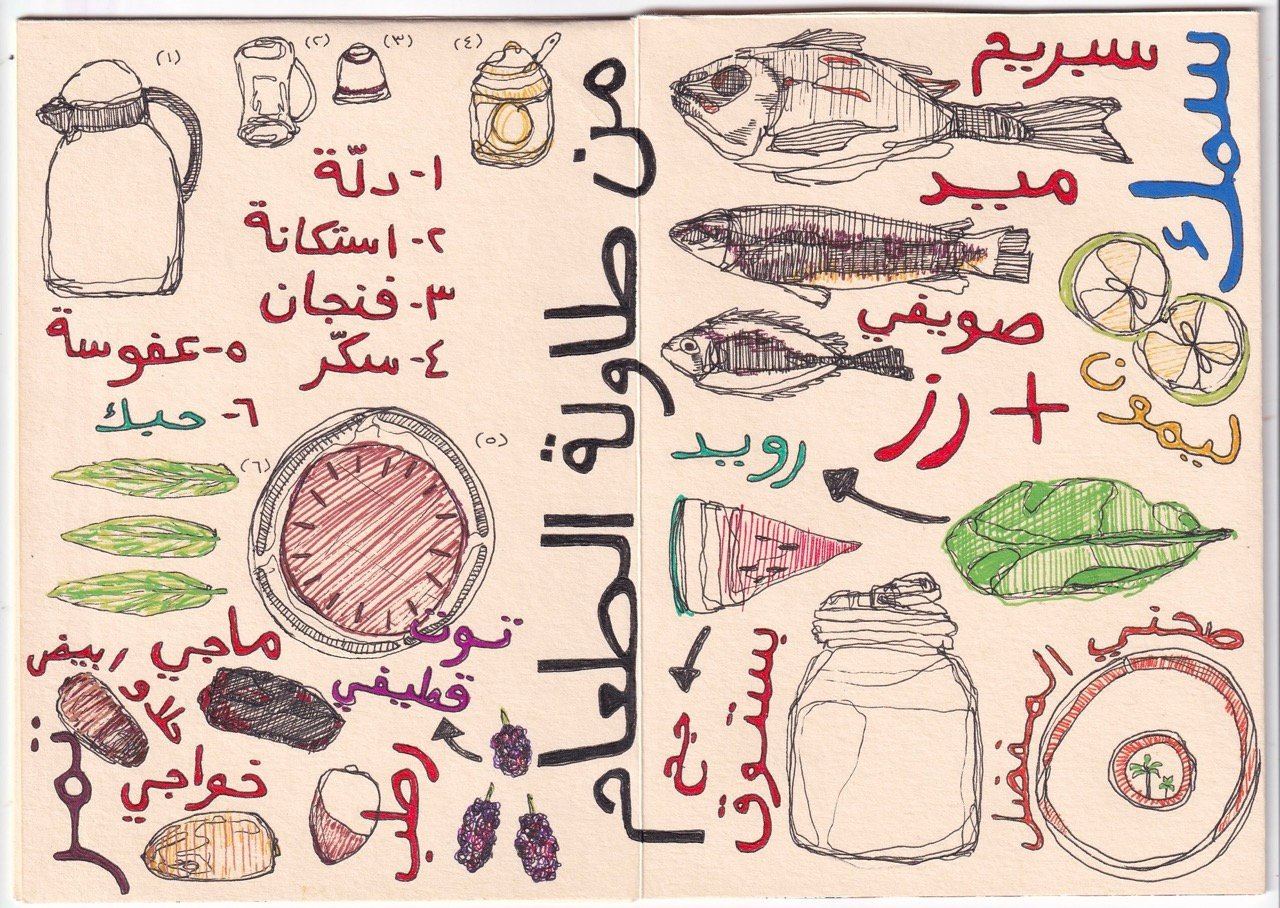 من طاولة الطعام
سمك
سبريم
ميد
صويفي
+ رز
ليمون
رويد
جح
بستوق
صحني المفضل
(١)
(٢)
(٣)
(٤)
١- دلّة
٢- استكانة
٣- فنجان
٤- سكّر
٥- عفوسة
٦- حبك
(٥)
(٦)
توت
قطيفي
ماجي
حلاو ابيض
خواجي
رطب
تمر